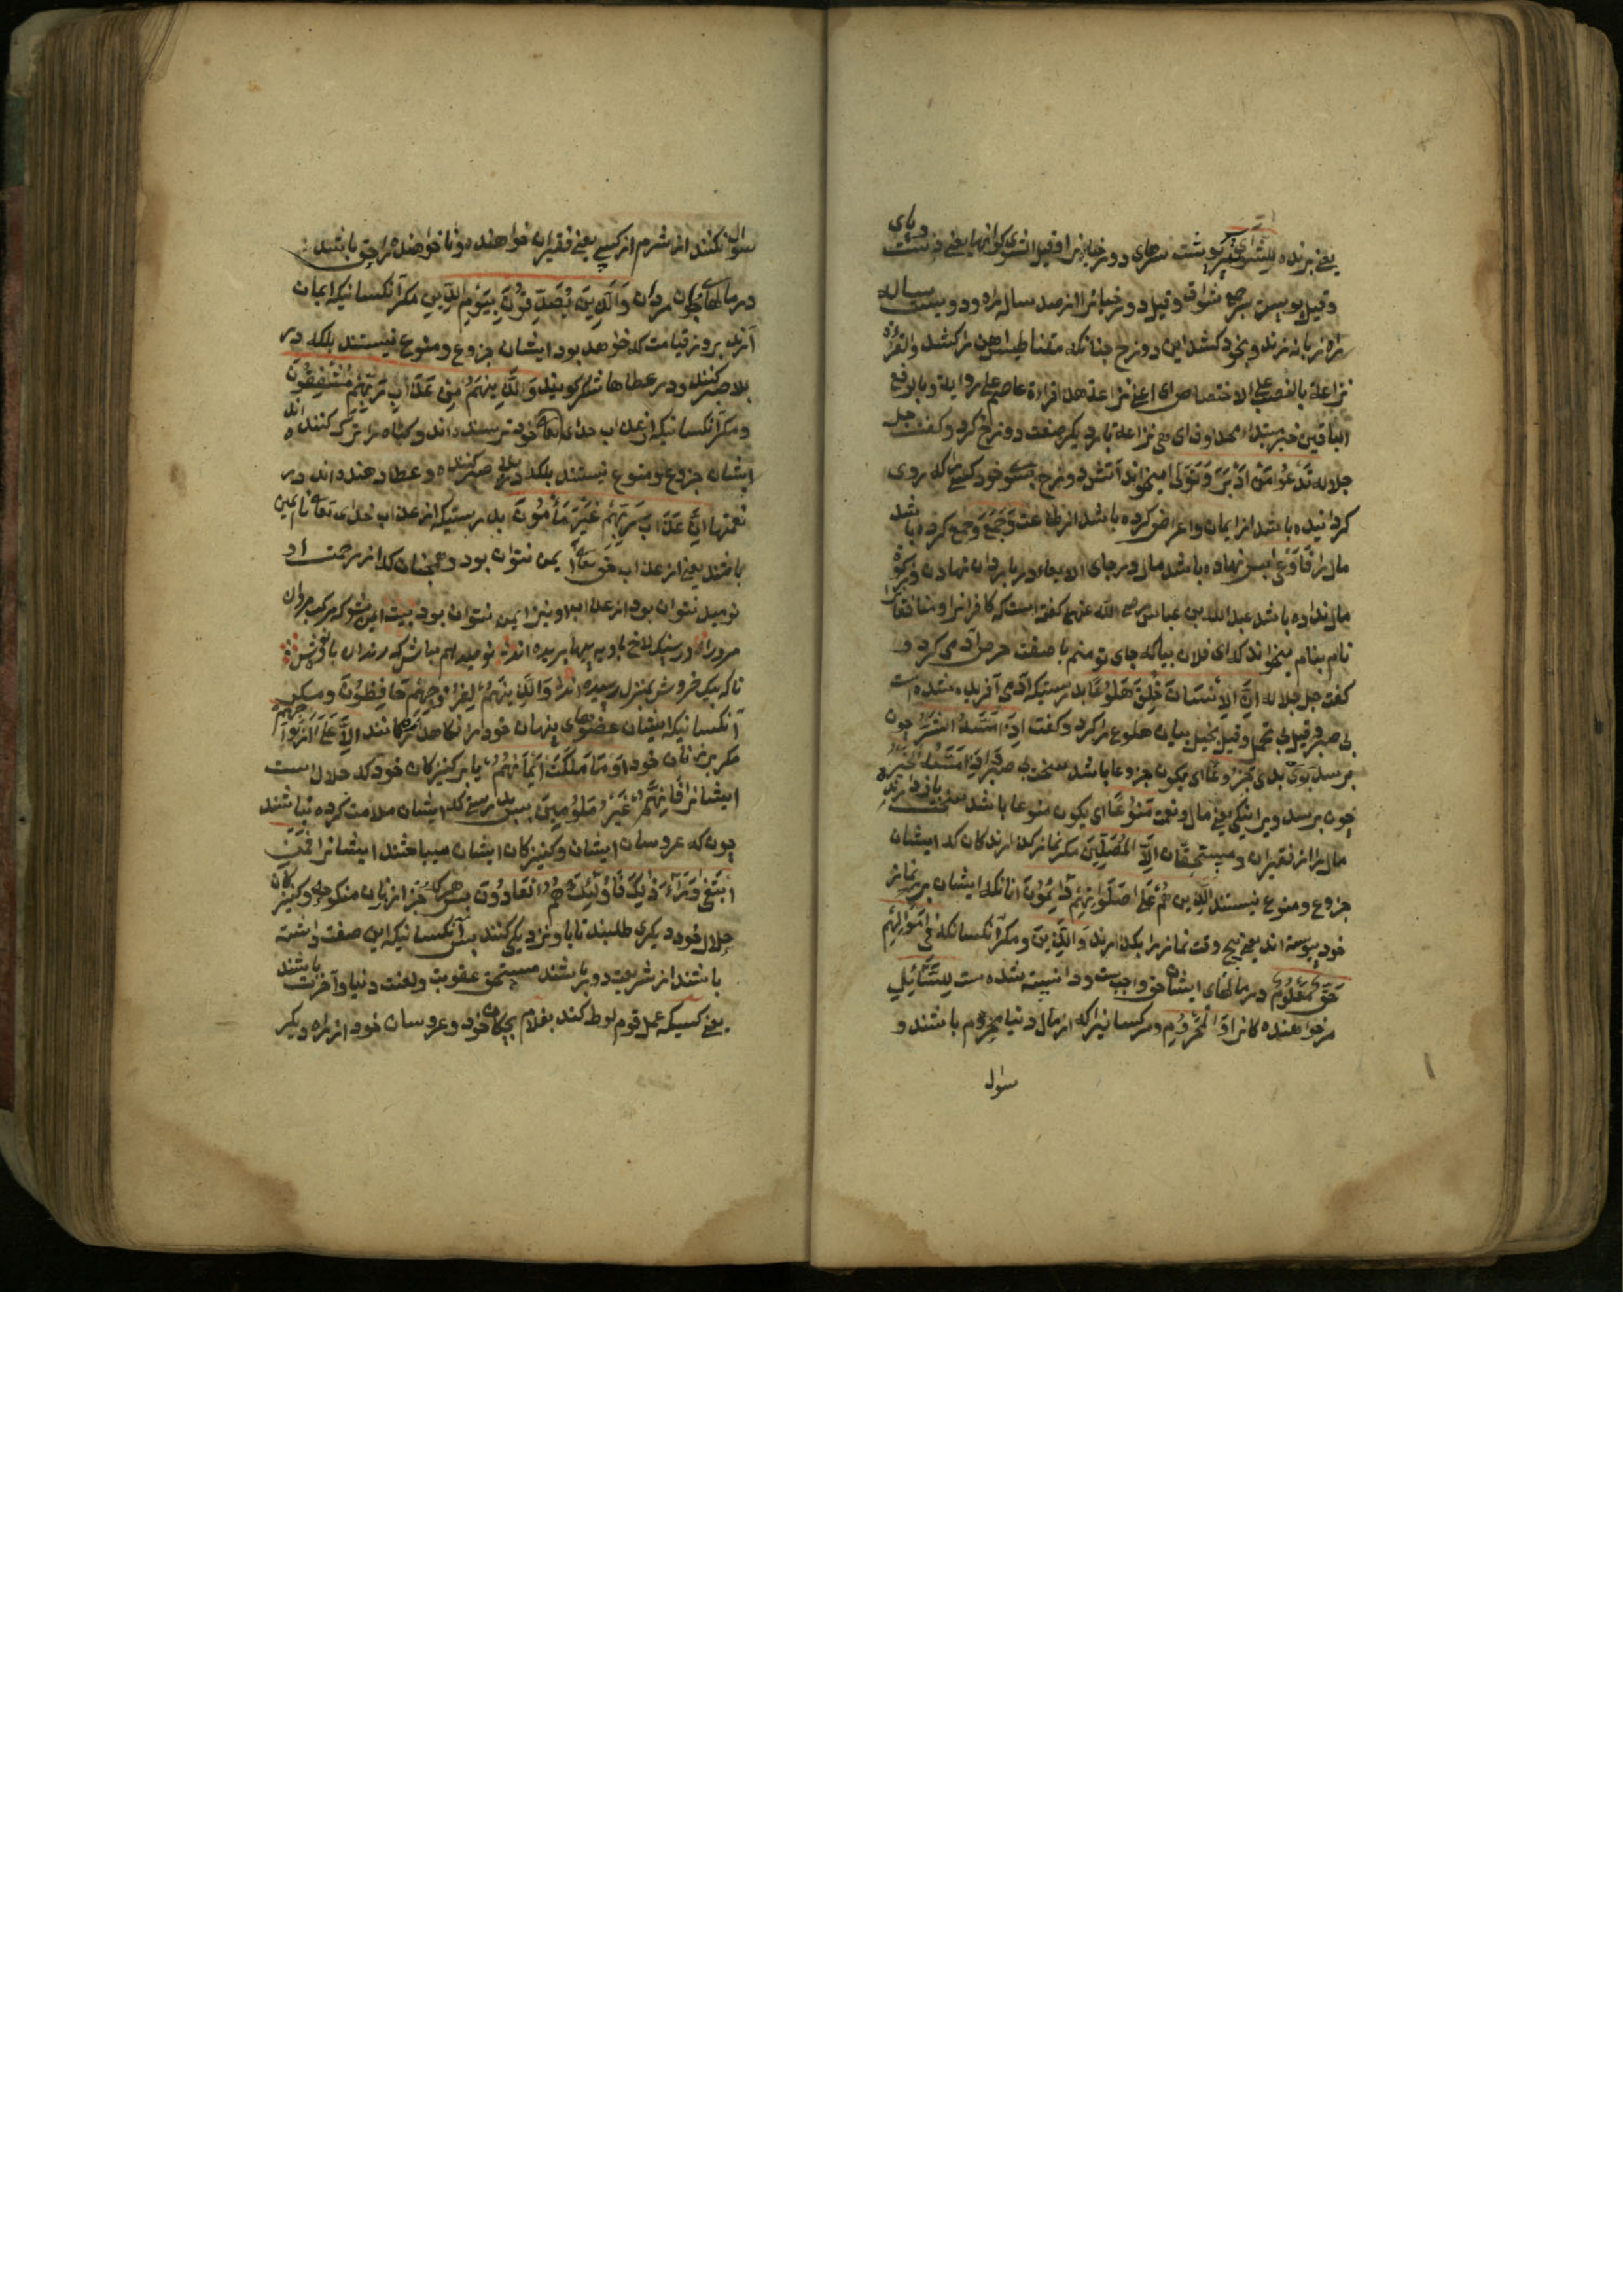 یعنی برنده للشوی مر پوشت سرهای دوزخیانرا وقیل الشوی کرانها یعنی دست و پای
وقیل پوست سر جمع شواة وقیل دوزخیانرا از صد ساله راه ودویست ساله
راه زبانه زند وبخود کشد این دوزخ چنانکه مقناطیس آهن را کشد والقراءة
نزاعة بالنصب علی الاختصاص ای اعنی نزاعة هذه قراءة عاصم علی روایة وبالرفع
الباقین خبر مبتداء محذوف ای هی نزاعة باز دیگر صفت دوزخ کرد وکفت جل
جلاله تَدْعُوا مَنْ اَدْبَرَ وَتَوَلّٰی میخواند آتش دوزخ بسوی خود کسی را که روی
کردانیده باشد از ایمان واعراض کرده باشد از طاعت وَجَمَعَ وجمع کرده باشد
مال را فَاَوْعٰی پس نهاده باشد مال در جای الایعاء در باردان نهادن وزکوة
مال نداده باشد عبد الله بن عباس رضی الله عنهما کفته است که کافرانرا ومنافقانرا
نام بنام میخواند که ای فلان بیا که جای تو منم باز صفت حرص آدمی کرد و
کفت جل جلاله اِنَّ الْاِنْسَانَ خُلِقَ هَلُوْعًا بدرستیکه آدمی آفریده شده است
بی صبر وقیل بی تحمل وقیل بخیل بیان هلوع را کرد وکفت اِذَا مَسَّهُ الشَّرُّ چون
برسد بوی بدی جَزُوعًا ای یکون جزوعا باشد سخت بی صبر وَاِذَا مَسَّهُ الْخَیْرُ و
چون برسد ویرا نیکی یعنی مال ونعمت مَنُوْعًا ای یکون منوعا باشد سخت بازدارنده
مال را از فقیران ومستحقان اِلَّا الْمُصَلِّیْنَ مکر نماز کذارندکان که ایشان
جزوع ومنوع نیستند اَلَّذِیْنَ هُمْ عَلٰی صَلَوتِهِمْ دَآئِمُوْنَ آنانکه ایشان بر نماز
خود پیوسته اند یعنی پنج وقت نماز را بکذارند وَالَّذِیْنَ ومکر آنکسانیکه فِیْ اَمْوَالِهِمْ
حَقٌّ مَعْلُوْمٌ در مالهای ایشان حق واجبست ودانسته شده است لِلسَّآئِلِ
مر خواهنده کانرا وَالْمَحْرُوْمِ ومر کسانیرا که از مال دنیا محروم باشند و
سوال
سوال نکنند از شرم از کسی یعنی فقیران خواهنده ونا خواهنده را حق باشد
در مالهای جوان مردان وَالَّذِیْنَ یُصَدِّقُوْنَ بِیَوْمِ الدِّیْنِ مکر آنکسانیکه ایمان
آرند بروز قیامت که خواهد بود ایشان جزوع ومنوع نیستند بلکه در
بلا صبر کنند ودر عطاها شکر کویند وَالَّذِیْنَهُمْ مِنْ عَذَابِ رَبِّهِمْ مُشْفِقُوْنَ
ومکر آنکسانیکه از عذاب خدای تعالی خود ترسنده اند وکناه را ترک کننده اند
ایشان جزوع ومنوع نیستند بلکه در بلا صبر کننده وعطا دهنده اند در
نعمتها اِنَّ عَذَابَ رَبِّهِمْ غَیْرُ مَأْمُوْنٍ بدرستیکه از عذاب خدای تعالی نا ایمن
باشند یعنی از عذاب حق تعالی ایمن نتوان بود وهمچنان که از رحمت او
نومید نتوان بود از عذاب او نیز ایمن نتوان بود بیت ایمن مشو که مرکب مردان
مرد را در سنکلاخ بادیه پیها بریده اند نومید هم مباش که رندان باده نوش
ناکه بیک خروش بمنزل رسیده اند وَالَّذِیْنَهُمْ لِفُرُوْجِهِمْ حَافِظُوْنَ ومکر
آنکسانیکه ایشان عضوهای پنهان خود را نکاهدارندکانند اِلَّا عَلٰی اَزْوَاجِهِمْ
مکر بر زنان خود اَوْ مَا مَلَکَتْ اَیْمَانُهُمْ یا بر کنیزکان خود که حلال است
ایشانرا فَاِنَّهُمْ غَیْرُ مَلُوْمِیْنَ پس بدرستی که ایشان ملامت کرده نباشند
چون که عروسان ایشان وکنیزکان ایشان میباشند ایشانرا فَمَنِ
ابْتَغٰی وَرَآءَ ذٰلِکَ فَاُولٰئِکَ هُمُ الْعَادُوْنَ پس هرکه جز از زنان منکوحه وکنیزکان
حلال خود دیکری طلبند تا با او نزدیکی کنند پس آنکسانیکه این صفت داشته
باشند از شریعت دور باشند مستحق عقوبت ولعنت دنیا وآخرت باشند
یعنی کسیکه عمل قوم لوط کند بغلام بچکان خود وعروسان خود از راه دیکر